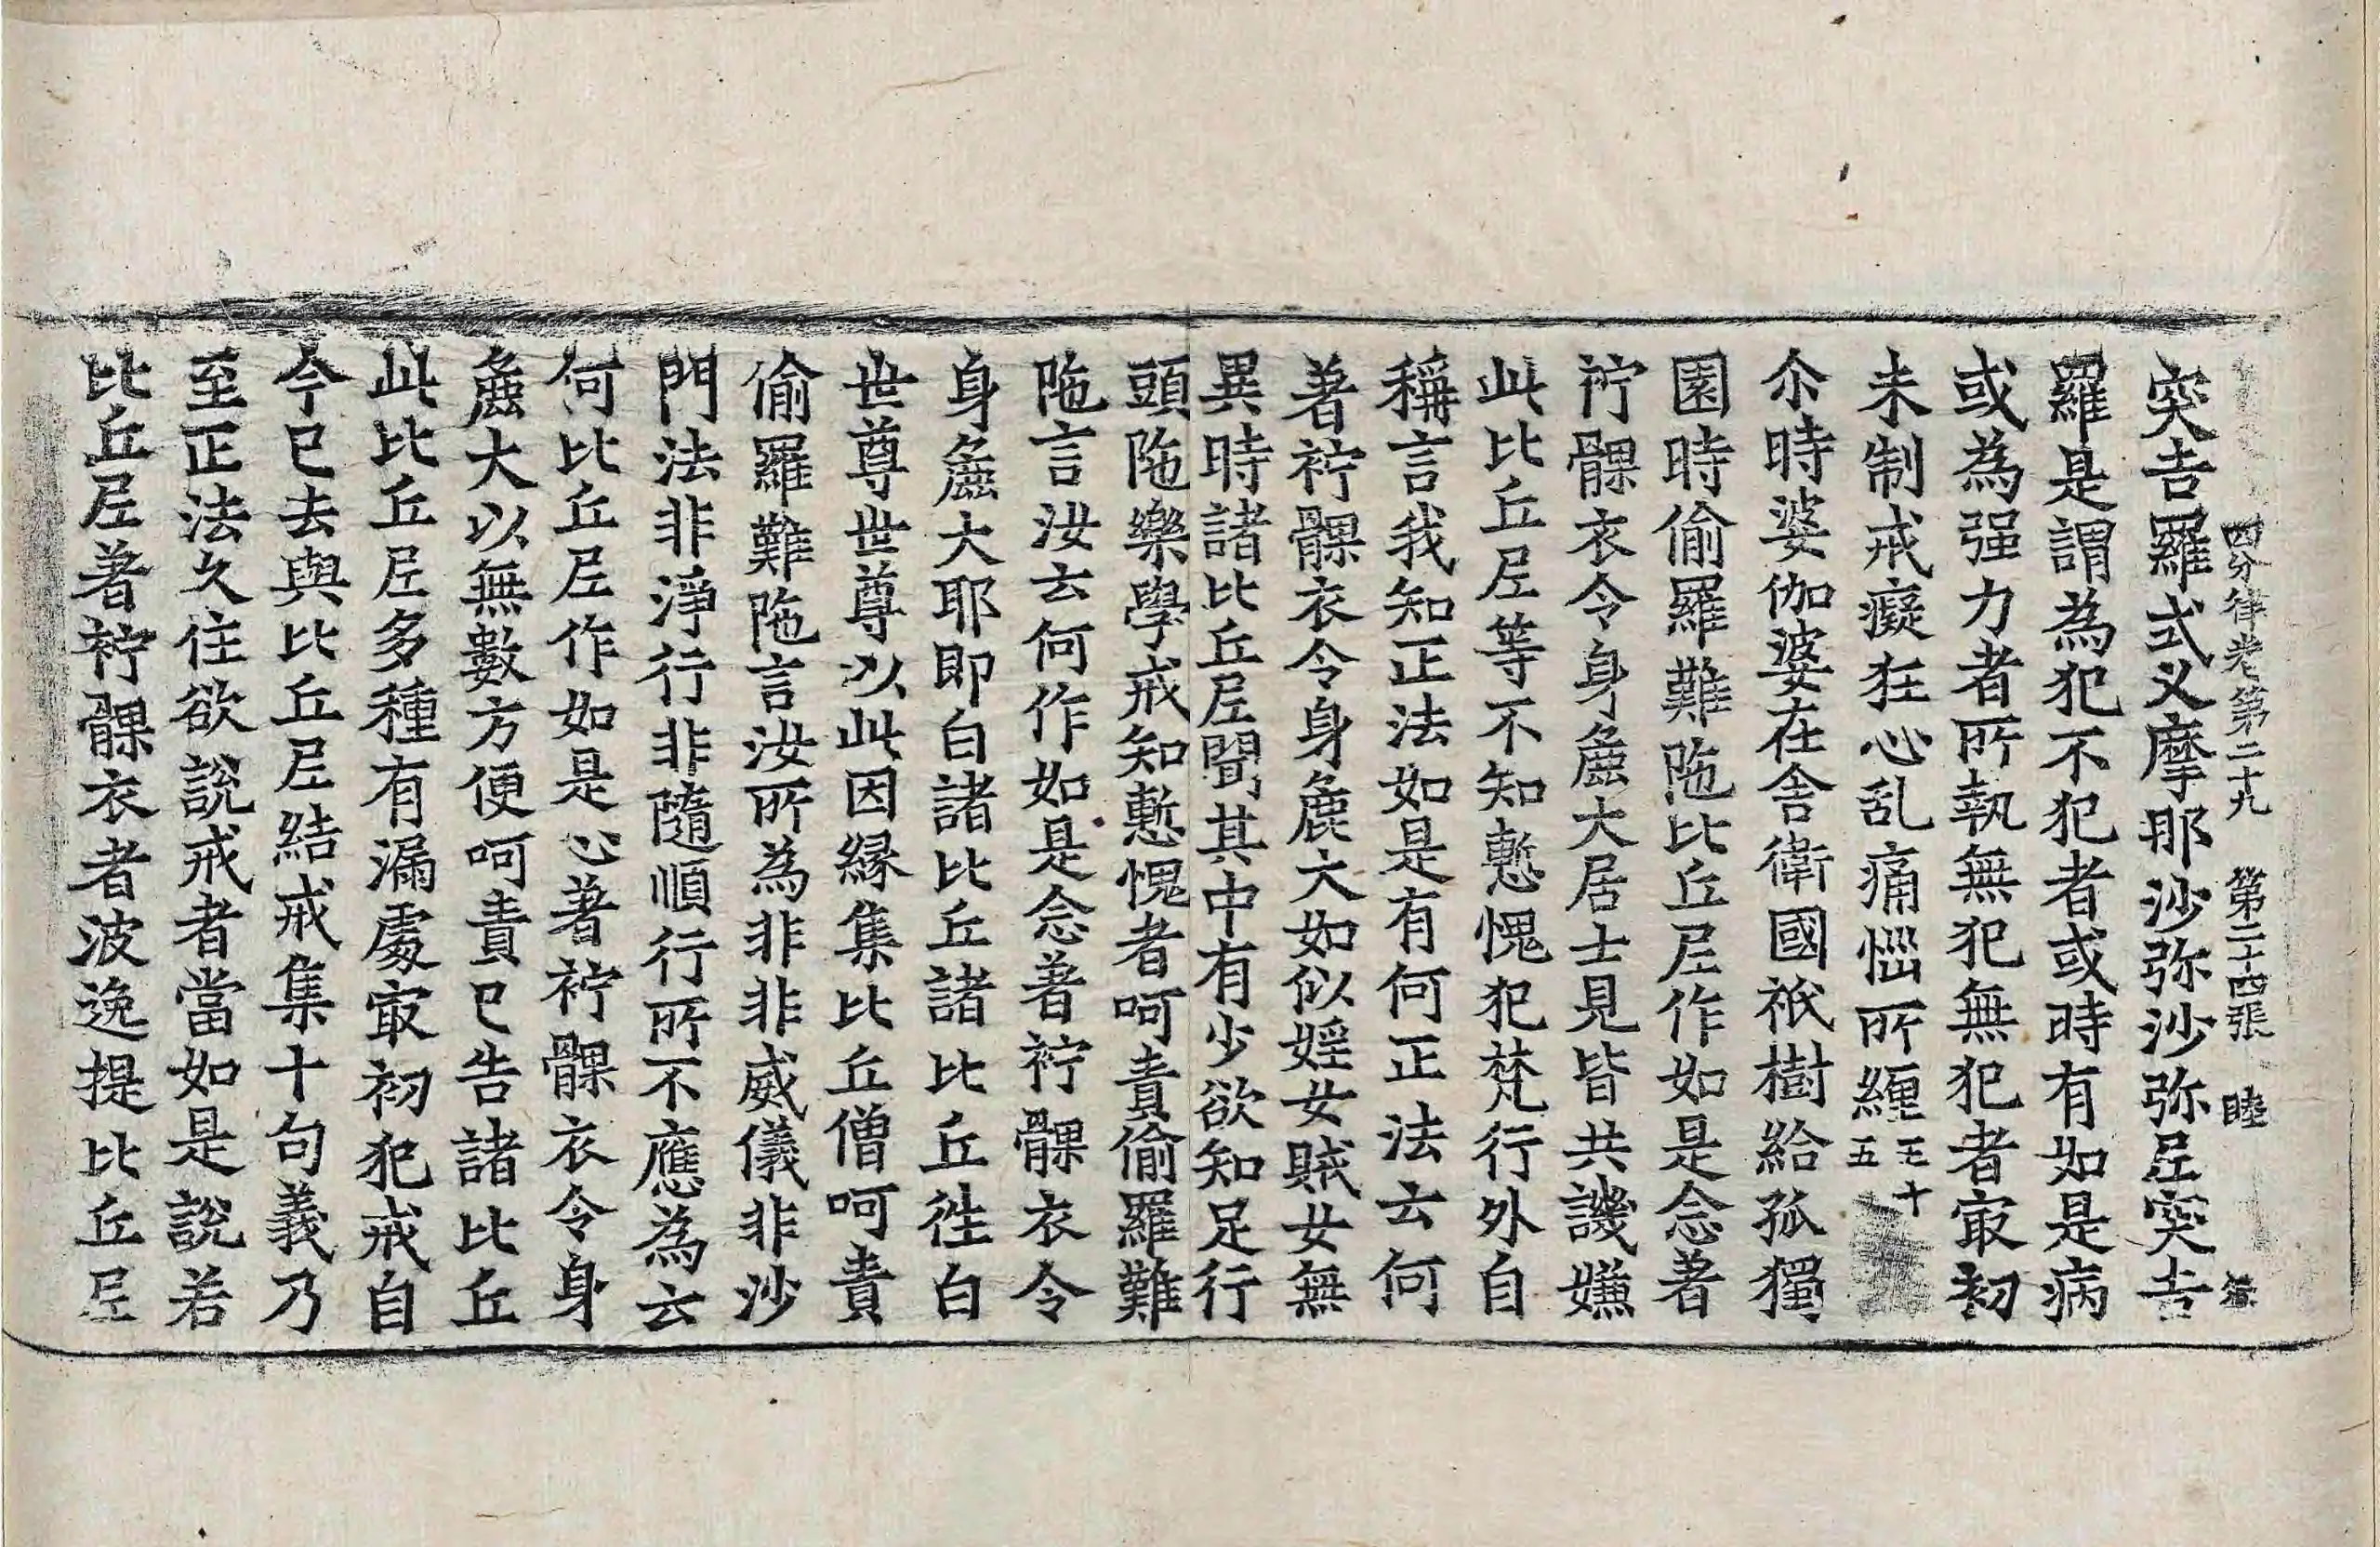 四分律卷第二十九 第二十四張 睦
突吉羅式叉摩那沙弥沙弥尼突吉
羅是謂為犯不犯者或時有如是病
或為强力者所執無犯無犯者㝡初
未制戒癡狂心乱痛惱所纒五十五
尒時婆伽婆在舍衛國祇樹給孤獨
園時偷羅難陁比丘尼作如是念著
袸髁衣令身麁大居士見皆共譏嫌
此比丘尼等不知慙愧犯梵行外自
稱言我知正法如是有何正法云何
著袸髁衣令身麁大如似婬女賊女無
異時諸比丘尼聞其中有少欲知足行
頭陁樂學戒知慙愧者呵責偷羅難
陁言汝云何作如是念著袸髁衣令
身麁大耶即白諸比丘諸比丘徃白
世尊世尊以此因緣集比丘僧呵責
偷羅難陁言汝所為非非威儀非沙
門法非淨行非隨順行所不應為云
何比丘尼作如是心著袸髁衣令身
麁大以無數方便呵責已告諸比丘
此比丘尼多種有漏處㝡初犯戒自
今已去與比丘尼結戒集十句義乃
至正法久住欲說戒者當如是說若
比丘尼著袸髁衣者波逸提比丘尼